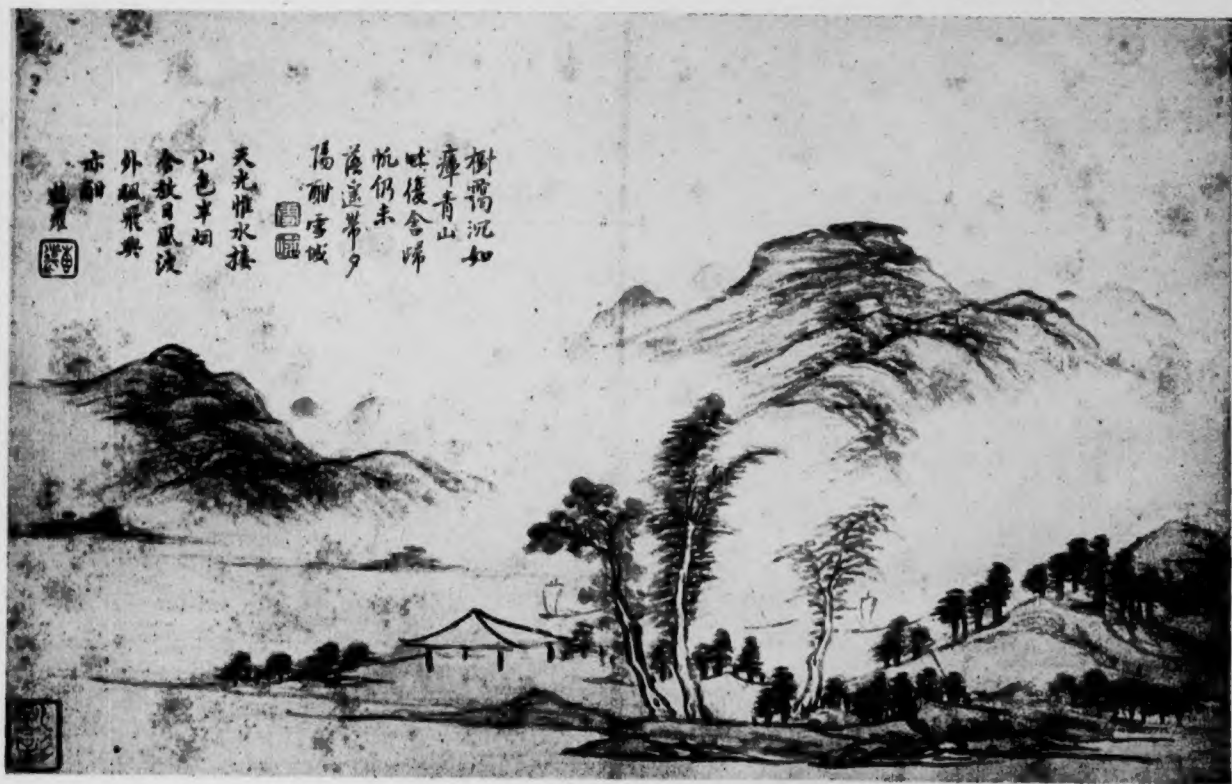 樹靄沉如
瘴青山
昧復含歸
帆仍未
落遙帶夕
陽酣雪城
天光惟水接
山色半烟
含放目風波
外孤飛興
亦酣